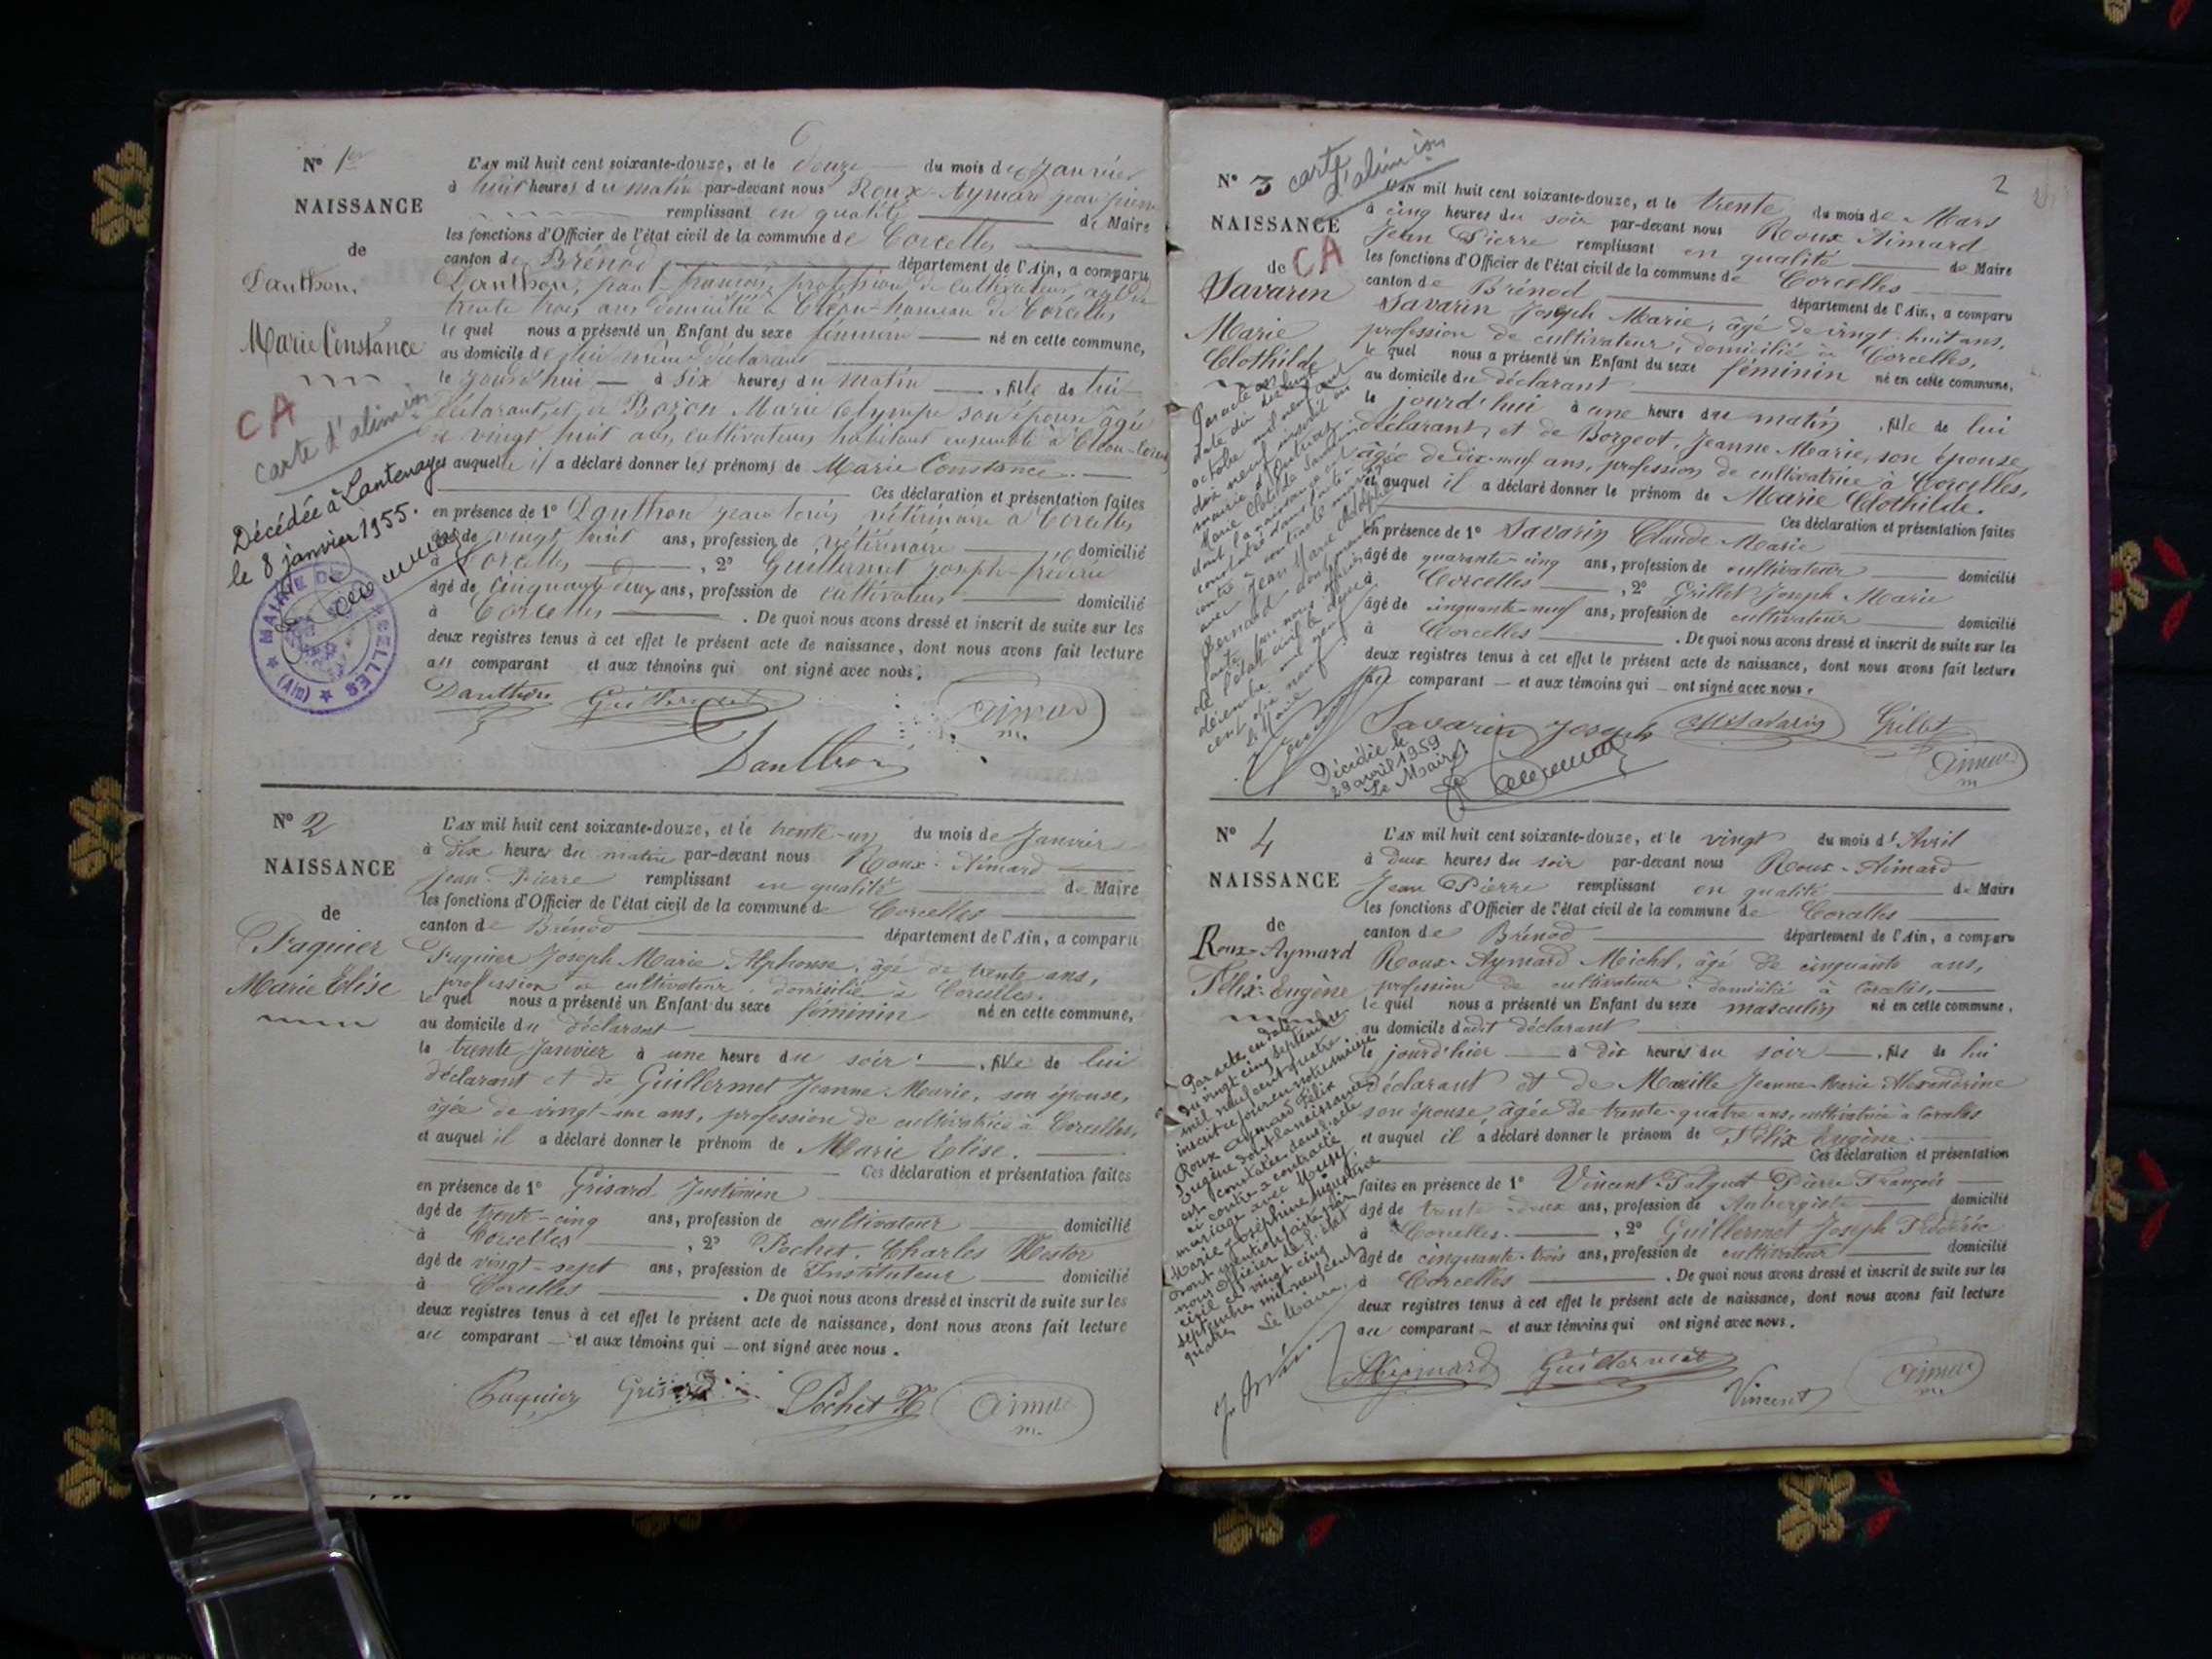 N° 1er
NAISSANCE
de
Danthon,
Marie Constance
CA
carte d'alim ion
Décédée à Lantenay
le 8 janvier 1955.
MAIRIE DE CORCELLES
(Ain)
L'AN mil huit cent soixante-douze, et le douze du mois de Janvier
à huit heures du matin par-devant nous Roux-Aymard jean pierre
remplissant en qualité de Maire
les fonctions d'Officier de l'état civil de la commune de Corcelles
canton de Brénod département de l'Ain, a comparu
Danthon, françois, profession de cultivateur, âgé de
trente trois ans domicilié à Cléon hameau de Corcelles
le quel nous a présenté un Enfant du sexe féminin né en cette commune,
au domicile de lui même déclarant
le jourd'hui à six heures du matin , fille de lui
déclarant, et de Bozon Marie Olympe son épouse âgée
de vingt huit ans, cultivateurs habitant ensemble à Cléon-
et auquel il a déclaré donner les prénoms de Marie Constance.
Ces déclaration et présentation faites
en présence de 1° Danthon vétérinaire à Corcelles
âgé de vingt huit ans, profession de vétérinaire domicilié
à Corcelles , 2° Guillermet joseph-fréderic
âgé de cinquante deux ans, profession de cultivateur domicilié
à Corcelles . De quoi nous avons dressé et inscrit de suite sur les
deux registres tenus à cet effet le présent acte de naissance, dont nous avons fait lecture
au comparant et aux témoins qui ont signé avec nous.
Danthon Guillermet Aimard
m.
Danthon
N° 2
NAISSANCE
de
Paquier
Marie Elise
L'AN mil huit cent soixante-douze, et le trente-un du mois de Janvier
à dix heures du matin par-devant nous Roux-Aimard
Jean-Pierre remplissant en qualité de Maire
les fonctions d'Officier de l'état civil de la commune de Corcelles
canton de Brénod département de l'Ain, a comparu
Paquier Joseph Marie Alphonse, âgé de trente ans,
profession de cultivateur, domicilié à Corcelles.
le quel nous a présenté un Enfant du sexe féminin né en cette commune,
au domicile du déclarant
le trente Janvier à une heure du soir , fille de lui
déclarant et de Guillermet Jeanne-Marie, son épouse,
âgée de vingt-un ans, profession de cultivatrice à Corcelles,
et auquel il a déclaré donner le prénom de Marie Elise.
Ces déclaration et présentation faites
en présence de 1° Grisard Justinien
âgé de trente-cinq ans, profession de cultivateur domicilié
à Corcelles , 2° Pochet Charles Nestor
âgé de vingt-sept ans, profession de Instituteur domicilié
à Corcelles . De quoi nous avons dressé et inscrit de suite sur les
deux registres tenus à cet effet le présent acte de naissance, dont nous avons fait lecture
au comparant et aux témoins qui ont signé avec nous.
Paquier Grisard Pochet N Aimard
m.
2
N° 3 carte
d'alim ion
NAISSANCE
de CA
Savarin
Marie
Clothilde
Par acte en
date du dix huit
octobre mil neuf cent
dix neuf inscrit en
mairie d'
Marie Clotilde Savarin
dont la naissance est
constatée dans l'acte ci
contre a contracté mariage
avec Jean Marie Adolphe
Bernard dont mention
faite par nous officier
de l'état civil le douze
décembre mil neuf
cent dix neuf
Le Maire
Décédée le
29 avril 1959
Le Maire
L'AN mil huit cent soixante-douze, et le trente du mois de Mars
à cinq heures du soir par-devant nous Roux Aimard
Jean Pierre remplissant en qualité de Maire
les fonctions d'Officier de l'état civil de la commune de Corcelles
canton de Brénod département de l'Ain, a comparu
Savarin Joseph Marie, âgé de vingt-huit ans,
profession de cultivateur, domicilié à Corcelles,
le quel nous a présenté un Enfant du sexe féminin né en cette commune,
au domicile du déclarant
le jourd'hui à une heure du matin , fille de lui
déclarant, et de Borgeot, Jeanne-Marie, son épouse,
âgée de dix-neuf ans, profession de cultivatrice à Corcelles,
et auquel il a déclaré donner le prénom de Marie Clothilde.
Ces déclaration et présentation faites
en présence de 1° Savarin Claude Marie
âgé de quarante-cinq ans, profession de cultivateur domicilié
à Corcelles , 2° Grillet Joseph-Marie
âgé de cinquante-neuf ans, profession de cultivateur domicilié
à Corcelles . De quoi nous avons dressé et inscrit de suite sur les
deux registres tenus à cet effet le présent acte de naissance, dont nous avons fait lecture
au comparant et aux témoins qui ont signé avec nous.
Savarin Joseph Savarin Grillet
Aimard
m
N° 4
NAISSANCE
de
Roux-Aymard
Félix-Eugène
Par acte en date
du vingt cinq septembre
mil neuf cent quatre
inscrit ce jour en notre mairie
Roux Aymard Félix
Eugène dont la naissance
est constatée dans l'acte
ci contre a contracté
mariage avec Musy
Marie Joséphine Augustine
dont mention faite par
nous Officier de l'état
civil ce vingt cinq
septembre mil neuf cent
quatre Le Maire.
L'AN mil huit cent soixante-douze, et le vingt du mois d'Avril
à deux heures du soir par-devant nous Roux-Aimard
Jean Pierre remplissant en qualité de Maire
les fonctions d'Officier de l'état civil de la commune de Corcelles
canton de Brénod département de l'Ain, a comparu
Roux-Aymard Michel, âgé de cinquante ans,
profession de cultivateur, domicilié à Corcelles,
le quel nous a présenté un Enfant du sexe masculin né en cette commune,
au domicile dudit déclarant
le jourd'hier à dix heures du soir , fils de lui
déclarant et de Maville Jeanne-Marie Alexandrine
son épouse, âgée de trente-quatre ans, cultivatrice à Corcelles
et auquel il a déclaré donner le prénom de Félix Eugène.
Ces déclaration et présentation
faites en présence de 1° Vincent-Falquet Pierre François
âgé de trente-deux ans, profession de Aubergiste domicilié
à Corcelles. , 2° Guillermet Joseph Fréderic
âgé de cinquante-trois ans, profession de cultivateur domicilié
à Corcelles . De quoi nous avons dressé et inscrit de suite sur les
deux registres tenus à cet effet le présent acte de naissance, dont nous avons fait lecture
au comparant et aux témoins qui ont signé avec nous.
Aymard Guillermet Vincent Aimard
m